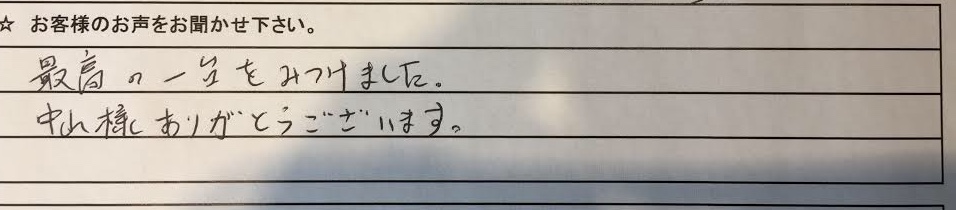 ☆ お客様のお声をお聞かせ下さい。
最高の一台をみつけました。
中山様ありがとうございます。